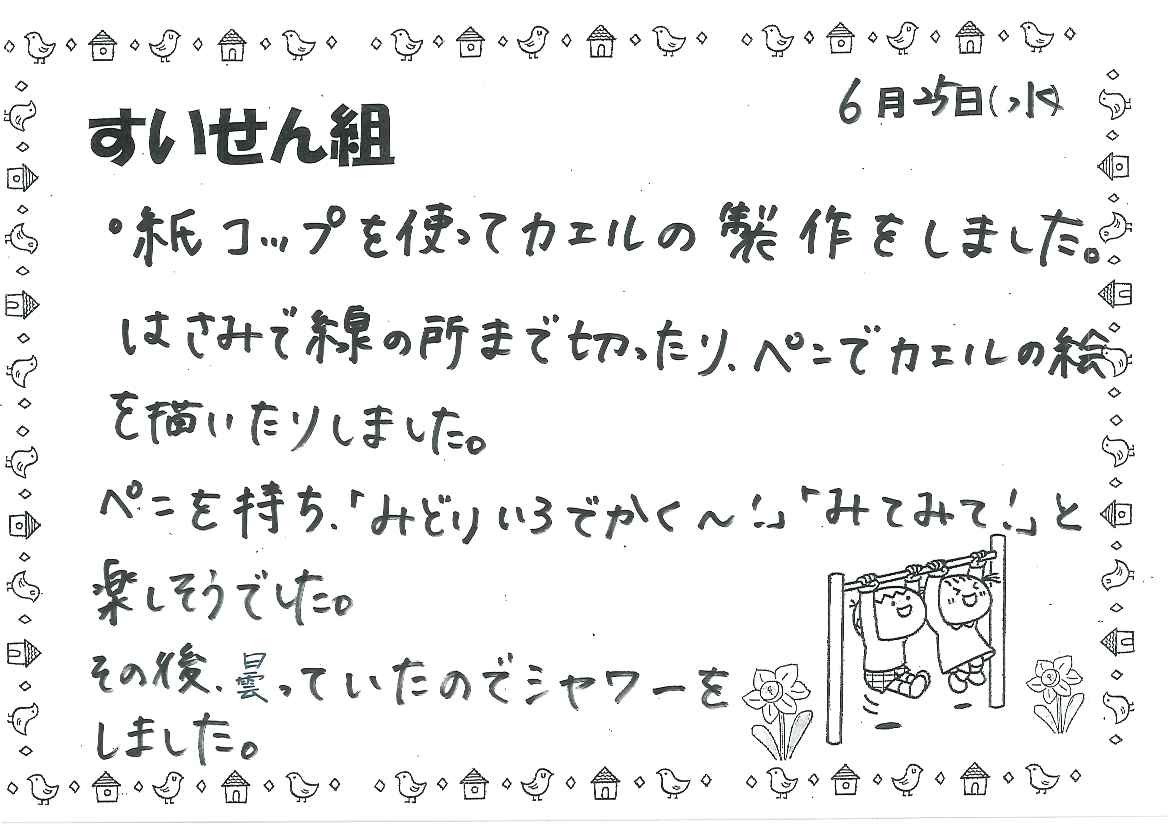 6月25日(水)
すいせん組
・紙コップを使ってカエルの製作をしました。
はさみで線の所まで切ったり、ペンでカエルの絵
を描いたりしました。
ペンを持ち、「みどりいろでかく～!」「みてみて!」と
楽しそうでした。
その後、曇っていたのでシャワーを
しました。